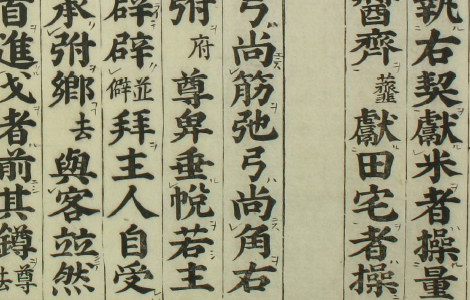 執右契獻米者操量
醬齊獻田宅者操
弓尚筋弛弓尚角右
弣府尊卑垂帨若主
辟辟並僻拜主人自受
承弣鄉去與客竝然
首進戈者前其鐏尊去